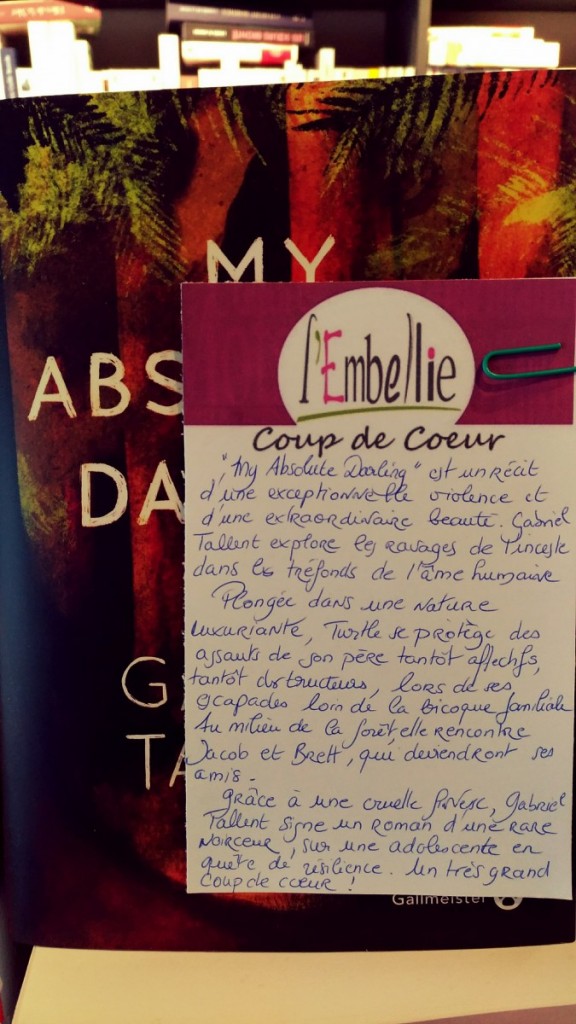 MY
ABS
DA
G
TA
l'Embellie
Coup de Coeur
"My Absolute Darling" est un récit
d'une exceptionnelle violence et
d'une extraordinaire beauté. Gabriel
Tallent explore les ravages de l'inceste
dans les tréfonds de l'âme humaine
Plongée dans une nature
luxuriante, Turtle se protège des
assauts de son père tantôt affectifs,
tantôt destructeurs, lors de ses
escapades loin de la bicoque familiale
Au milieu de la forêt, elle rencontre
Jacob et Brett, qui deviendront ses
amis.
Grâce à une cruelle finesse, Gabriel
Tallent signe un roman d'une rare
noirceur, sur une adolescente en
quête de résilience. Un très grand
coup de coeur !
Gallmeister